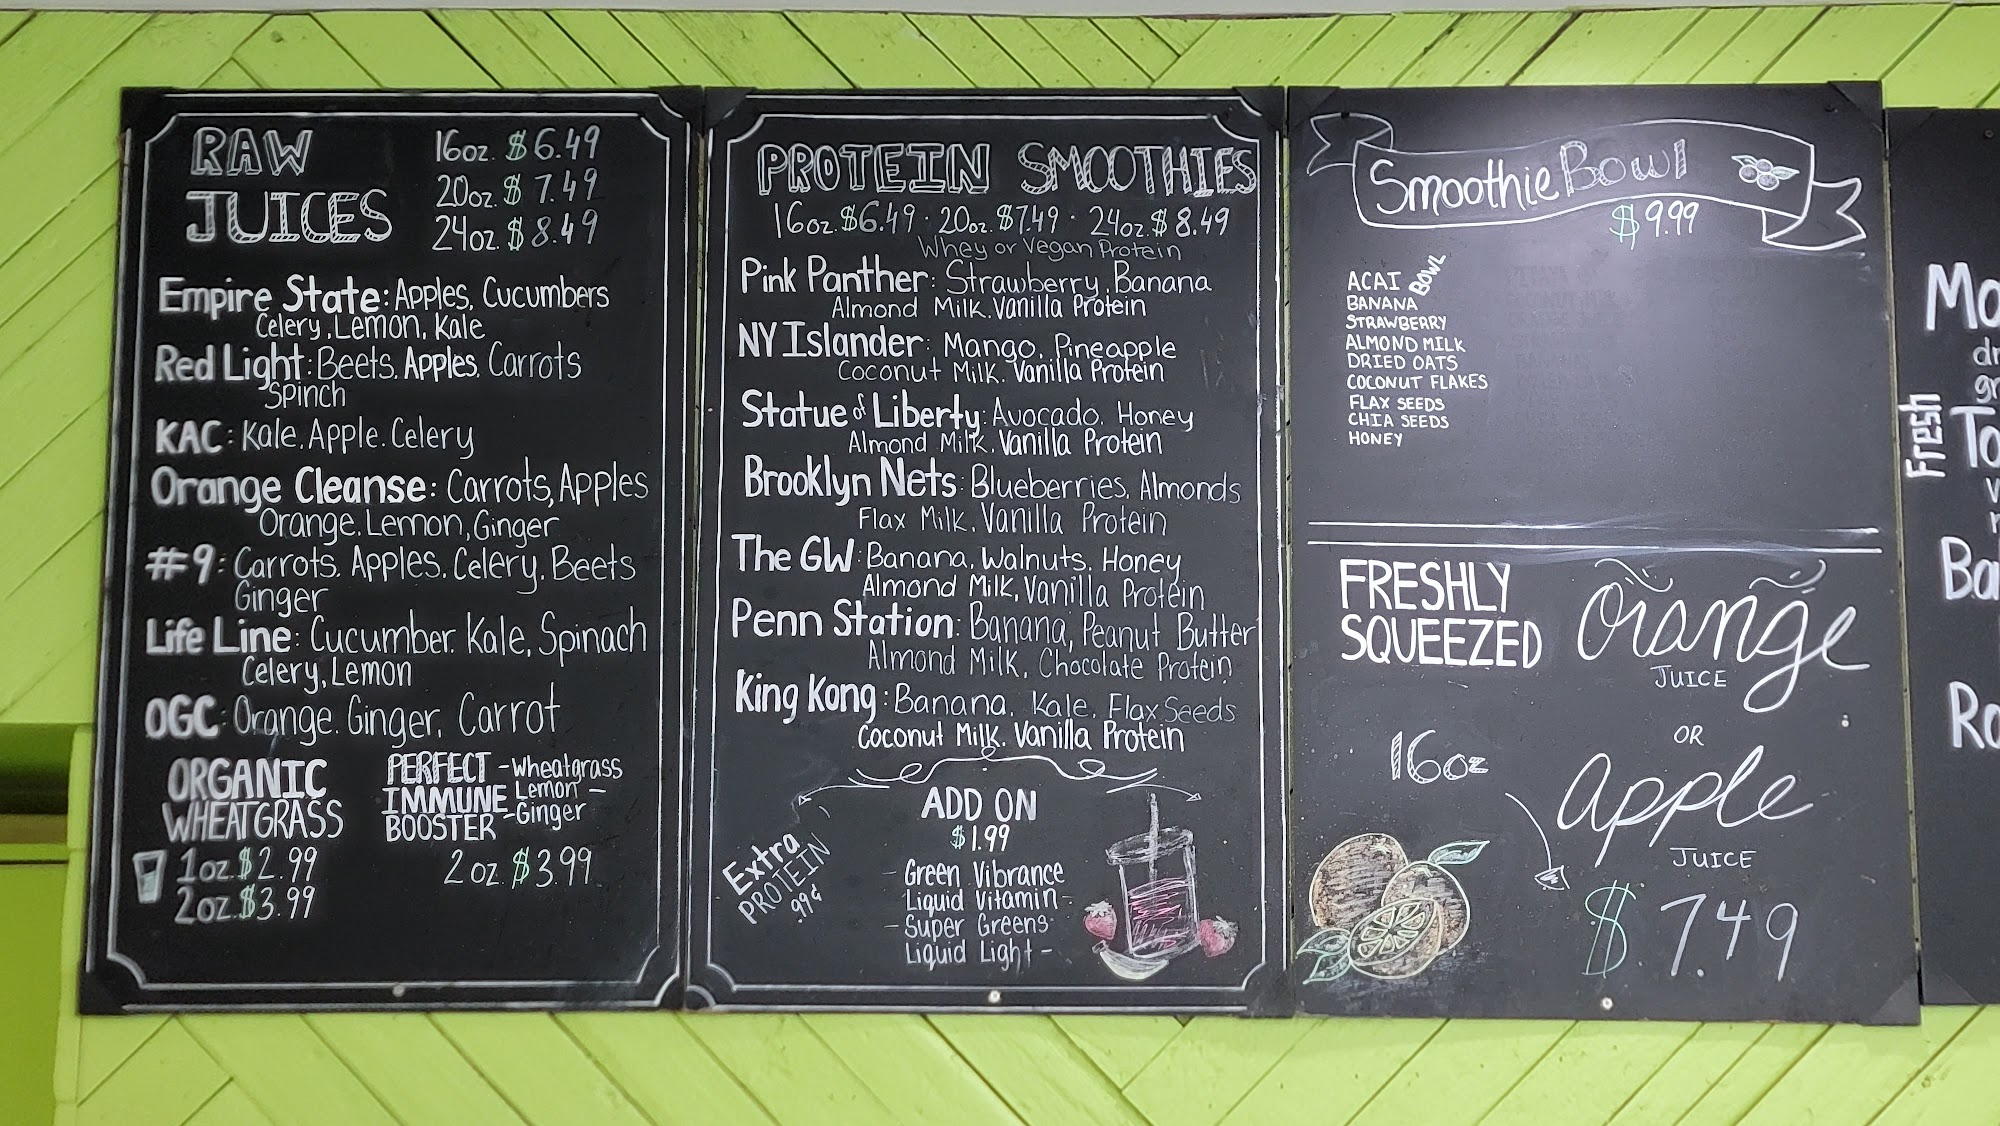 RAW
JUICES
16oz. $6.49
20oz. $7.49
24oz. $8.49
Empire State: Apples, Cucumbers
Celery, Lemon, Kale
Red Light: Beets, Apples, Carrots
Spinch
KAC: Kale, Apple, Celery
Orange Cleanse: Carrots, Apples
Orange, Lemon, Ginger
#9: Carrots, Apples, Celery, Beets
Ginger
Life Line: Cucumber, Kale, Spinach
Celery, Lemon
OGC: Orange, Ginger, Carrot
ORGANIC
WHEATGRASS
1oz. $2.99
2oz. $3.99
PERFECT - Wheatgrass
IMMUNE Lemon -
BOOSTER - Ginger
2oz. $3.99
PROTEIN SMOOTHIES
16oz. $6.49 · 20oz. $7.49 · 24oz. $8.49
Whey or Vegan Protein
Pink Panther: Strawberry, Banana
Almond Milk, Vanilla Protein
NY Islander: Mango, Pineapple
Coconut Milk, Vanilla Protein
Statue of Liberty: Avocado, Honey
Almond Milk, Vanilla Protein
Brooklyn Nets: Blueberries, Almonds
Flax Milk, Vanilla Protein
The GW: Banana, Walnuts, Honey
Almond Milk, Vanilla Protein
Penn Station: Banana, Peanut Butter
Almond Milk, Chocolate Protein
King Kong: Banana, Kale, Flax Seeds
Coconut Milk, Vanilla Protein
Extra
PROTEIN
.99¢
ADD ON
$1.99
- Green Vibrance
Liquid Vitamin -
- Super Greens
Liquid Light -
Smoothie Bowl
$9.99
ACAI BOWL
BANANA
STRAWBERRY
ALMOND MILK
DRIED OATS
COCONUT FLAKES
FLAX SEEDS
CHIA SEEDS
HONEY
FRESHLY
SQUEEZED
orange
JUICE
OR
apple
JUICE
16oz
$7.49
Fresh